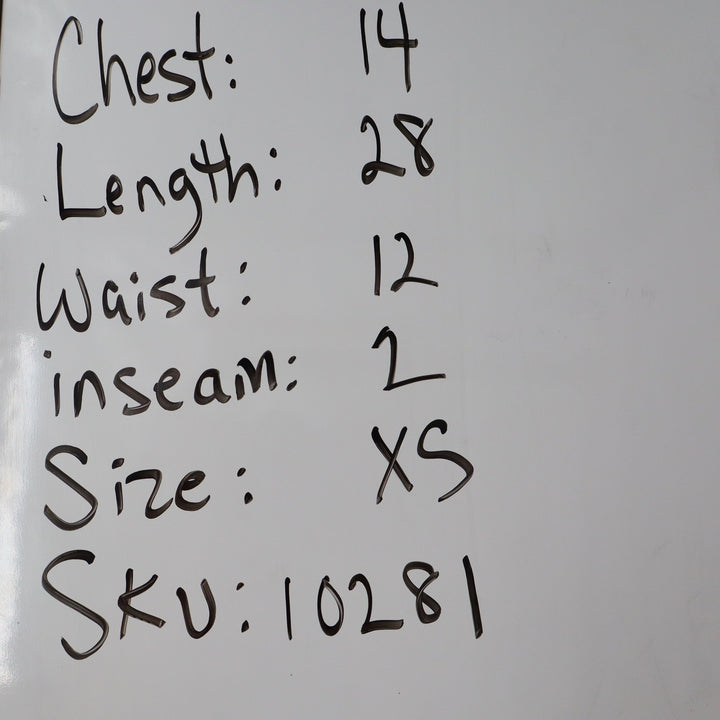 Chest: 14
Length: 28
Waist: 12
inseam: 2
Size: XS
SKU: 10281